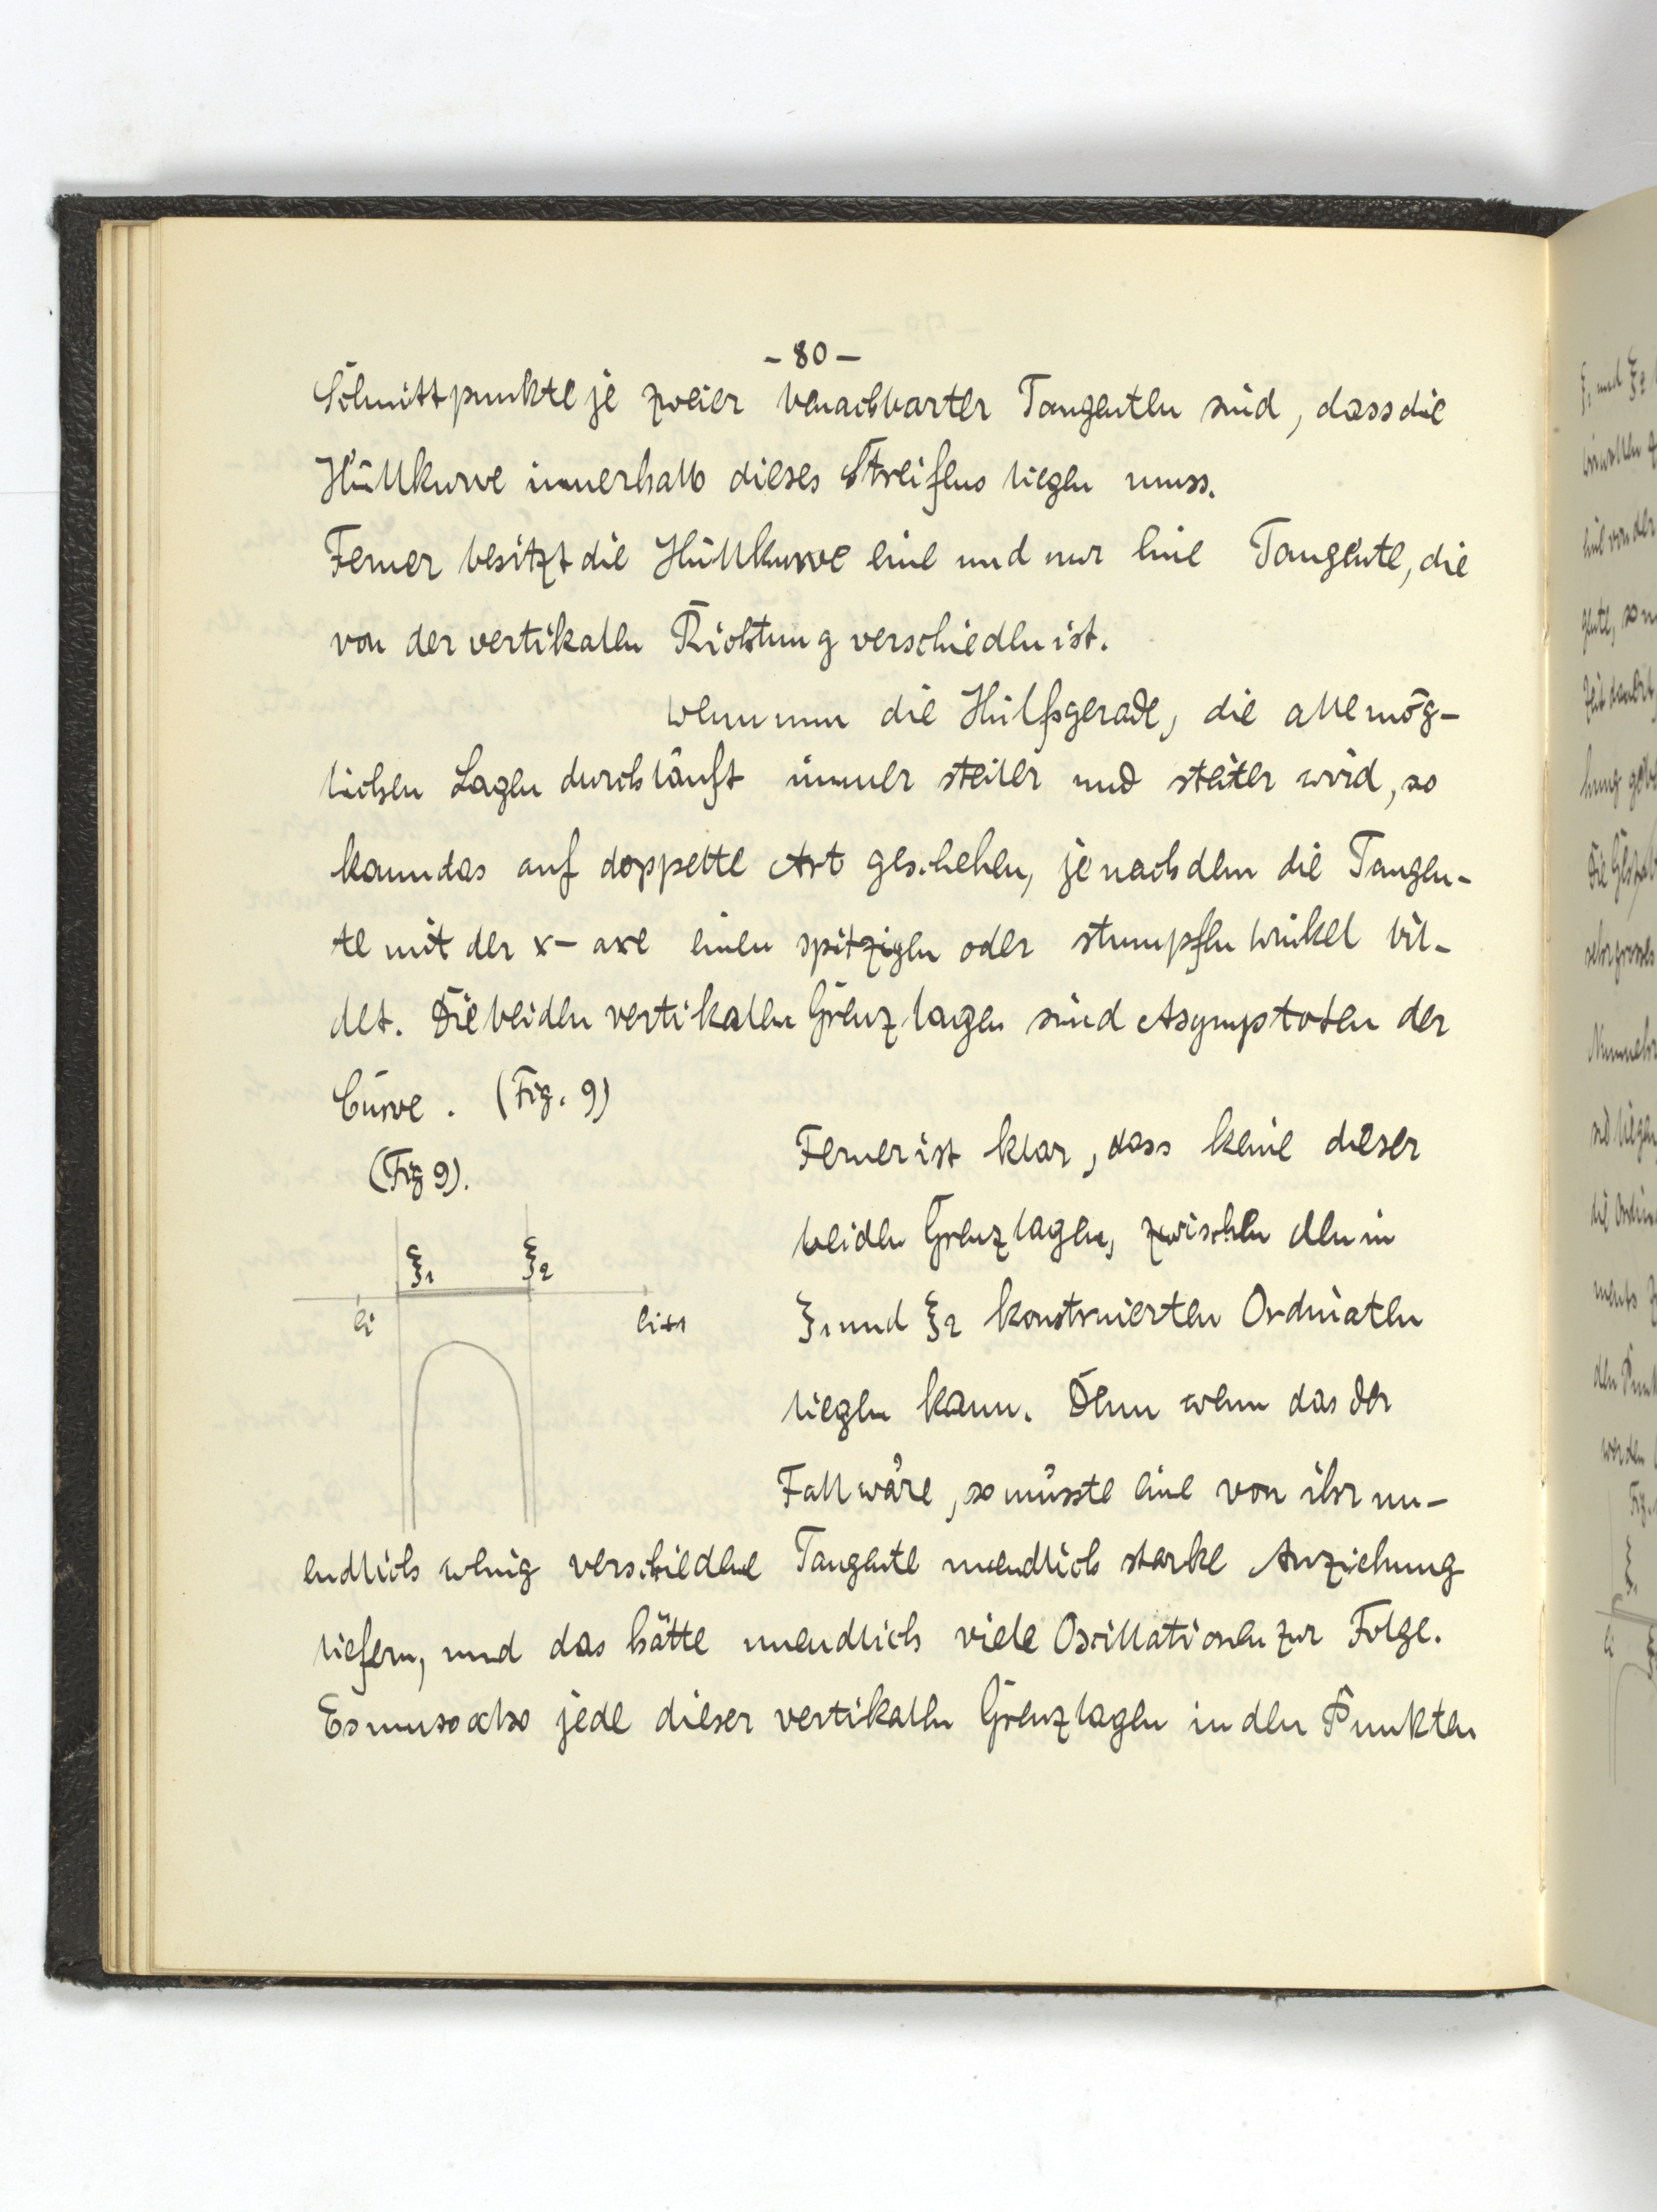 - 80 -
Schnittpunkte je zweier benachbarter Tangenten sind, dass die
Hüllkurve innerhalb dieses Streifens liegen muss.
Ferner besitzt die Hüllkurve eine und nur eine Tangente, die
von der vertikalen Richtung verschieden ist.
Wenn nun die Hülfsgerade, die alle mög-
lichen Lagen durchläuft immer steiler und steiler wird, so
kann das auf doppelte Art geschehen, je nachdem die Tangen-
te mit der x-axe einen spitzigen oder stumpfen Winkel bil-
det. Die beiden vertikalen Grenzlagen sind Asymptoten der
Curve. (Fig. 9)
(Fig 9).
ξ1 ξ2
ei ei+1
Ferner ist klar, dass keine dieser
beiden Grenzlagen, zwischen den in
ξ1 und ξ2 konstruierten Ordinaten
liegen kann. Denn wenn das der
Fall wäre, so müsste eine von ihr un-
endlich wenig verschiedene Tangente unendlich starke Anziehung
liefern, und das hätte unendlich viele Oscillationen zur Folge.
Es muss also jede dieser vertikalen Grenzlagen in den Punkten